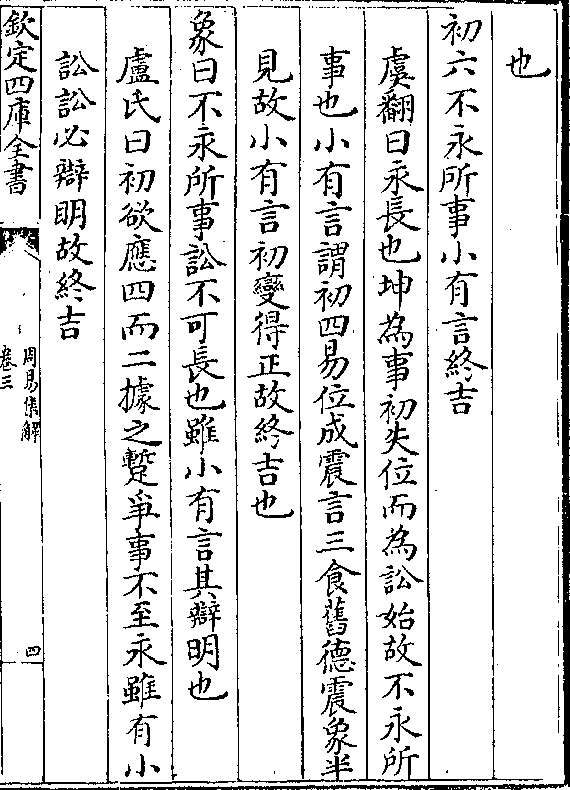 也
初六不永所事小有言終吉
虞翻曰永長也坤為事初失位而為訟始故不永所
事也小有言謂初四易位成震言三食舊德震象半
見故小有言初變得正故終吉也
象曰不永所事訟不可長也雖小有言其辯明也
盧氏曰初欲應四而二據之蹔爭事不至永雖有小
訟訟必辯明故終吉
欽定四庫全書
周易集解
卷三
四